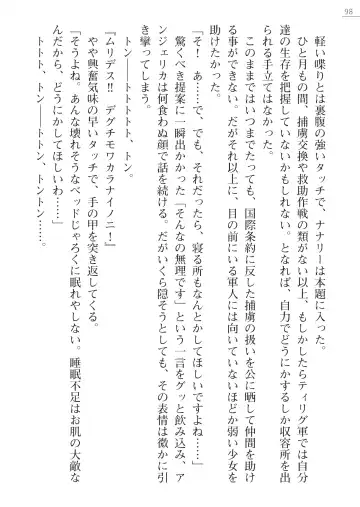 98
軽い喋りとは裏腹の強いタッチで、ナナリーは本題に入った。
ひと月もの間、捕虜交換や救助作戦の類がない以上、もしかしたらティリグ軍では自分
達の生存を把握していないかもしれない。となれば、自力でどうにかするしか収容所を出
られる手立てはなかった。
このままではいつまでたっても、国際条約に反した捕虜の扱いを公に晒して仲間を助け
る事ができない。だがそれ以上に、目の前にいる軍人には向いていないほどか弱い少女を
助けたかった。
「そ！　あ……で、でも、それだったら、寝る所もなんとかしてほしいですよね……」
驚くべき提案に一瞬出かかった「そんなの無理です」という一言をグッと飲み込み、ア
ンジェリカは何食わぬ顔で話を続ける。だがいくら隠そうとしても、その表情は微かに引
き攣ってしまう。
トン――トトトトト、トン。
『ムリデス!!　デグチモワカラナイノニ！』
やや興奮気味の早いタッチで、手の甲を突き返してくる。
「そうよね。あんな壊れそうなベッドじゃろくに眠れやしない。睡眠不足はお肌の大敵な
んだから、どうにかしてほしいわ……」
トトト、トン――トトン、トントン――……。